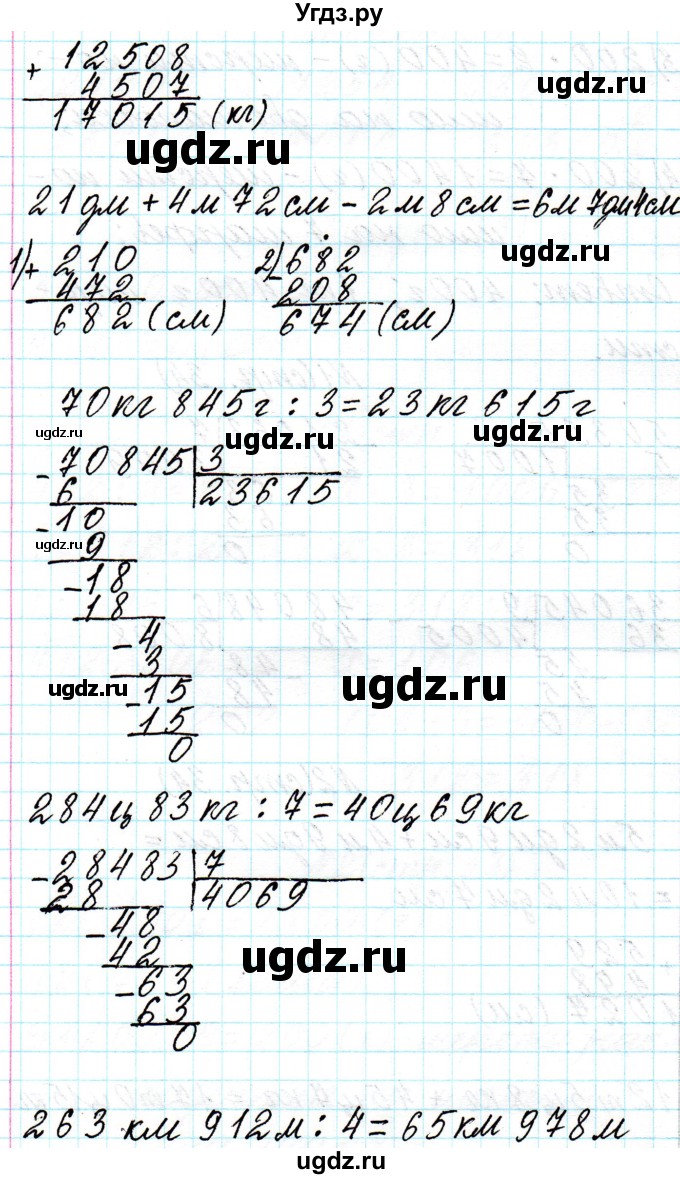 Угдз.ру
+ 12508
4507
17015 (кг)
ugdz.ru
ugdz.ru
21 дм + 4 м 72 см - 2 м 8 см = 6 м 7 дм 4 см
ugdz.ru
1) + 210
472
682 (см)
2) - 682
208
674 (см)
70 кг 845 г : 3 = 23 кг 615 г
ugdz.ru
ugdz.ru
ugdz.ru
- 70845 | 3
6
23615
- 10
ugdz.ru
9
- 18
18
- 4
3
ugdz.ru
ugdz.ru
- 15
15
0
284 ц 83 кг : 7 = 40 ц 69 кг
- 28483 | 7
28
4069
- 48
42
ugdz.ru
- 63
63
0
263 км 912 м : 4 = 65 км 978 м
ugdz.ru